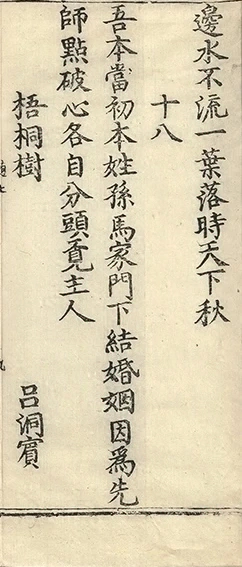 邊水不流一葉落時天下秋
十八
吾本當初本姓孫馬家門下結婚姻因爲先
師點破心各自分頭覔主人
梧桐樹
呂洞賓